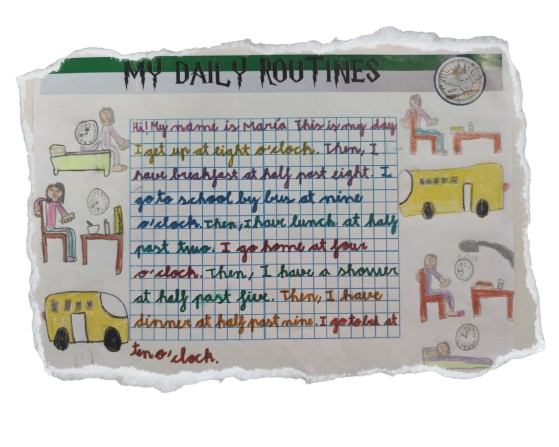 MY DAILY ROUTINES
Hi! My name is María This is my day
I get up at eight o'clock. Then, I
have breakfast at half past eight. I
go to school by bus at nine
o'clock. Then, I have lunch at half
past two. I go home at four
o'clock. Then, I have a shower
at half past five. Then, I have
dinner at half past nine. I go to bed at
ten o'clock.